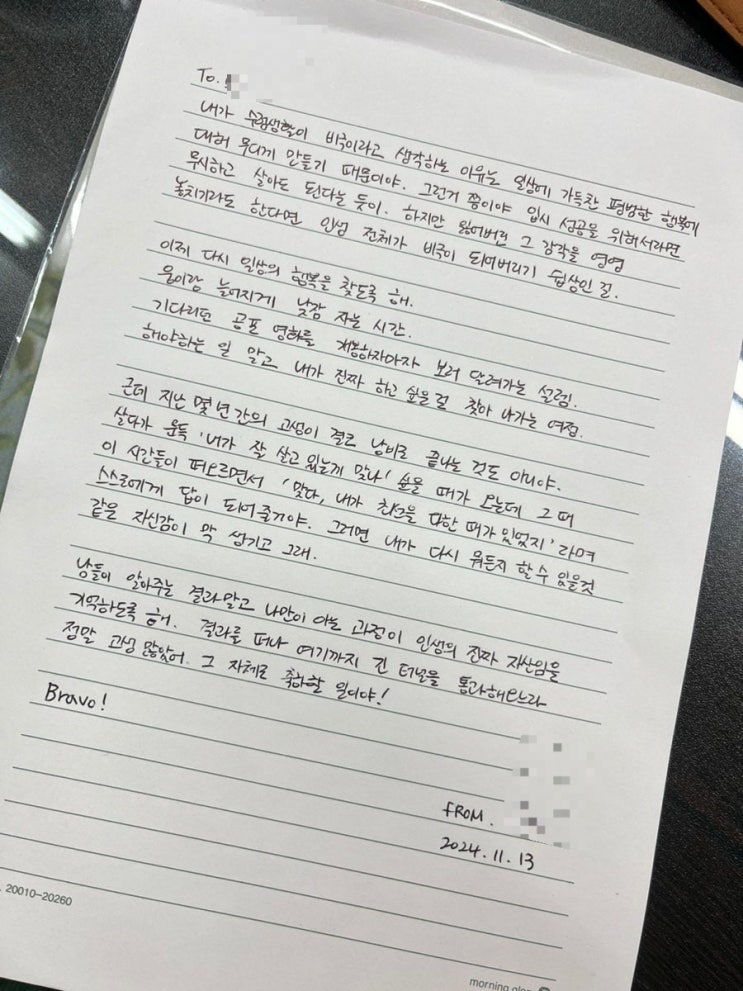 To.
내가 수험생활이 비극이라고 생각하는 이유는 일상에 가득찬 평범한 행복에
대해 무디게 만들기 때문이야. 그런거 쯤이야 입시 성공을 위해서라면
무시하고 살아도 된다는 듯이. 하지만 잃어버린 그 감각을 영영
놓치기라도 한다면 인생 전체가 비극이 되어버리기 쉽상인 걸.
이제 다시 일상의 행복을 찾도록 해.
옹이랑 늘어지게 낮잠 자는 시간.
기다리던 공포 영화를 개봉하자마자 보러 달려가는 설렘.
해야하는 일 말고 내가 진짜 하고 싶은걸 찾아 나가는 여정.
근데 지난 몇 년간의 고생이 결코 낭비로 끝나는 것도 아니야.
살다가 문득 '내가 잘 살고 있는게 맞나' 싶을 때가 오는데 그 때
이 시간들이 떠오르면서 '맞다, 내가 최선을 다한 때가 있었지' 라며
스스로에게 답이 되어 줄거야. 그러면 내가 다시 뭐든지 할 수 있을것
같은 자신감이 막 생기고 그래.
남들이 알아주는 결과말고 나만이 아는 과정이 인생의 진짜 자산임을
기억하도록 해. 결과를 떠나 여기까지 긴 터널을 통과해오느라
정말 고생 많았어. 그 자체로 축하할 일이야!
Bravo!
FROM.
2024.11.13
20010-20260
morning